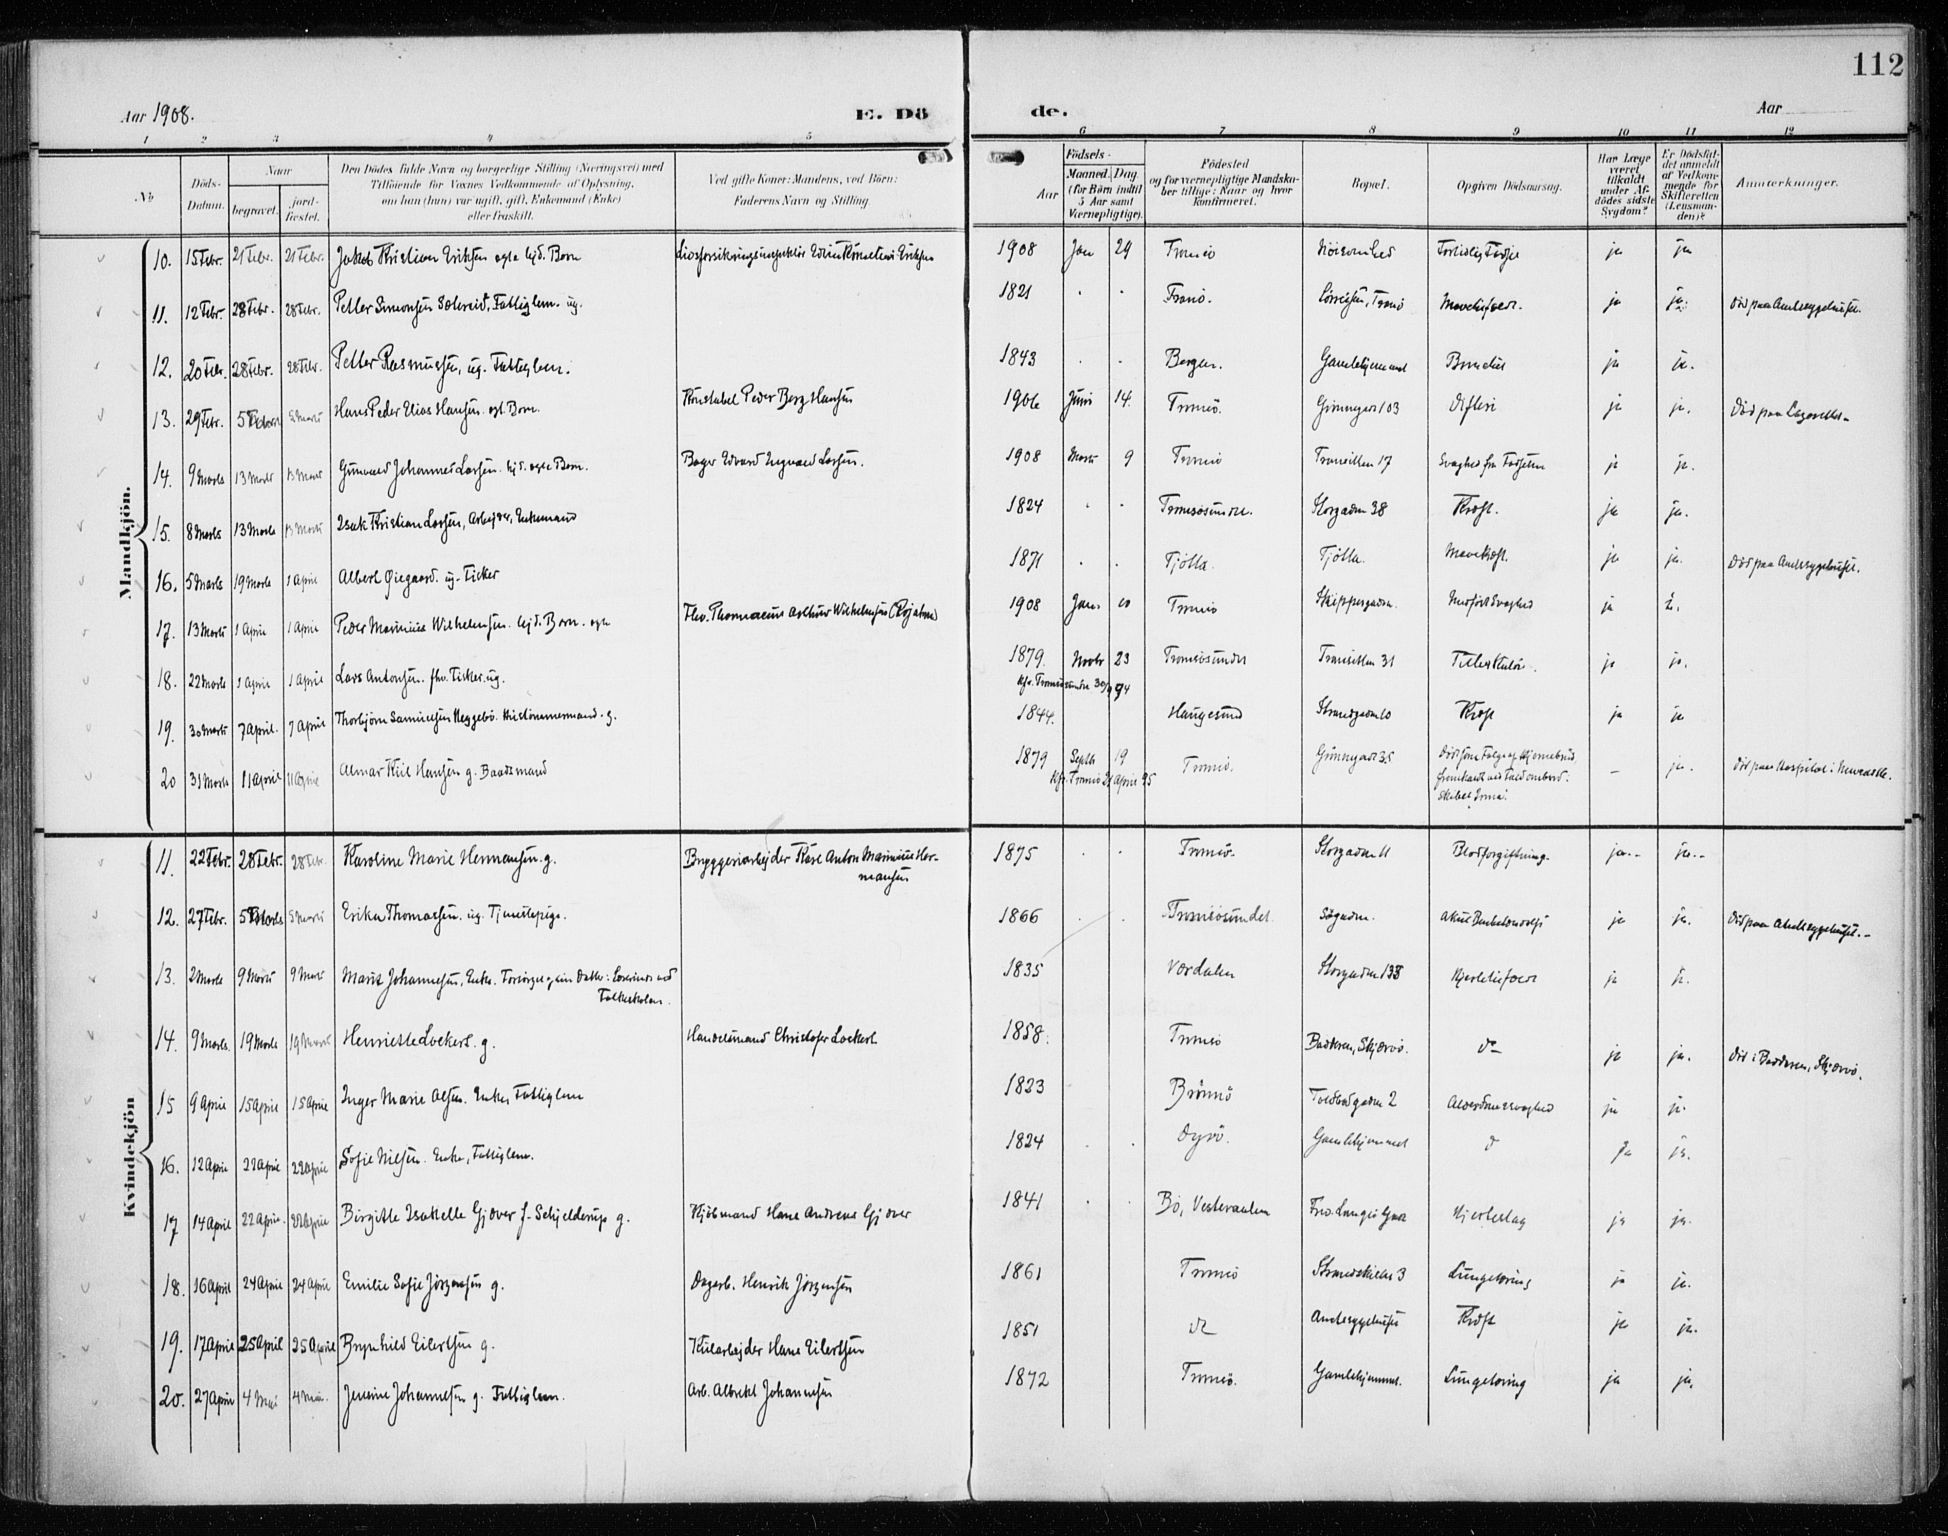 112
Aar 1908.
E. Dö
de.
Aar
1 2 3 4 5 6 7 8 9 10 11 12
No
Döds-Datum.
Naar
begravet.
jord-fæstet.
Den Dödes fulde Navn og borgerlige Stilling (Næringsvei) med
Tilföiende for Voxnes Vedkommende af Oplysning,
om han (hun) var ugift, gift, Enkemand (Enke)
eller fraskilt.
Ved gifte Koner: Mandens, ved Börn:
Faderens Navn og Stilling.
Födsels-
Aar
Maaned. Dag.
(for Börn indtil
5 Aar samt
Værnepligtige).
Födested
og for værnepligtige Mandska-
ber tillige: Naar og hvor
konfirmeret.
Bopæl.
Opgiven Dödsaarsag.
Har Læge
været
tilkaldt
under Af-
dödes sidste
Sygdom?
Er Dödsfal-
det anmeldt
af Vedkom-
mende for
Skifteretten
(Lensman-
den)?
Anmærkninger.
Mandkjön.
10. 15 Febr. 21 Febr. 21 Febr. Jakob Kristian Eriksen 1908 Jan 29 Tromsö ja ja
11. 12 Febr. 28 Febr. 28 Febr. Petter Simonsen Fattiglem. ug. 1821 Tranö. ja ja. Död paa Amtssygehuset.
12. 20 Febr. 28 Febr. 28 Febr. Petter Rasmussen, ug. Fattiglem. 1843 Bergen. Gamlehjemmet ja ja.
13. 29 Febr. 5 Marts Hans Peder Elias Hansen. egt. Barn. Konstabel Peder Berg Hansen 1906 Juni 14. Tromsö. Grönnegt 103 Difteri ja ja. Död paa Lazarettet
14. 9 Marts 13 Marts 13 Marts Johannes Larsen. egte Barn. Bager Edvard Ingvald Larsen. 1908 Marts 9 Tromsö 17 Svaghed fra Födselen ja ja.
15. 8 Marts 13 Marts 13 Marts Isak Kristian Larsen, Arbejder, Enkemand 1824 Tromsösundet. Storgaden 38 Kræft. ja ja.
16. 5 Marts 19 Marts 1 April Albert Øiegaard. ug. Fisker 1871 Tjötta. Tjötta. Mavekræft. ja ja. Död paa Amtssygehuset.
17. 13 Marts 1 April 1 April Peder Marinius Wilhelmsen. Barn. egte 1908 Tromsö Skippergaden. Medfödt Svaghed ja
18. 22 Marts 1 April 1 April Lars Antonsen. fhv. Fisker. ug. 1879. Novbr 23 Tromsösundet 31 ja ja.
19. 30 Marts 7 April. 7 April Thorbjörn Samuelsen g. 1844. Haugesund Strandgaden 10 Kræft ja ja
20 31 Marts 11 April 11 April Almar Kiil Hansen g. Baadsmand 1879 Septb 19 Tromsö. Grönnegadt 35 – ja. Död paa Hospital i Newcastle.
Kfr. Tromsö 21 April 95
Kvindekjön
11. 22 Febr. 28 Febr. 28 Febr. Karoline Marie Hermansen. g. Bryggeriarbejder Kare Anton Marinius Her-
mansen 1875 Tromsö. Storgaden 11 Blodforgiftning. ja ja
12. 27 Febr. 5 Marts 5 Marts Erika Thomassen. ug. Tjenestepige. 1866 Tromsösundet. Sögaden. ja ja. Död paa Amtssygehuset.
13. 2 Marts 9 Marts 9 Marts Marie Johannesen, Enke. Forsörget af sin Datter: Lærerinde ved
Folkeskolen. 1835 Værdalen Storgaden 138 Hjertelidelse ja ja.
14. 9 Marts. 19 Marts 19 Marts Henriette Lockert. g. Handelsmand Christofer Lockert 1858. Tromsö Badderen, Skjærvö. do ja ja. Död i Badderen, Skjærvö.
15 9 April 15 April 15 April Inger Marie Olsen. Enke, Fattiglem 1823 Brönnö Toldbodgaden 2 Alderdomssvaghed ja ja.
16. 12 April 22 April 22 April Sofie Nilsen. Enke, Fattiglem. 1824 Dyrö. Gamlehjemmet ja ja.
17 14 April 22 April. 22 April Birgitte Isabelle Gjæver f. Schjelderup g. Kjöbmand Hans Andreas Gjæver 1841 Bö, Vesteraalen Hjerteslag ja ja.
18. 16 April 24 April 24 April Emilie Sofie Jörgensen g. Dagarb. Henrik Jörgensen 1861 Tromsö Strandskillet 3 Lungetæring ja ja.
19. 17 April 25 April 25 April Brynhild Eilertsen g. Kularbejder Hans Eilertsen 1851 do Amtssygehuset Kræft ja ja.
20. 27 April 4 Mai 4 Mai. Jensine Johannesen g. Fattiglem. Arb. Albrekt Johannesen 1872 Tromsö. Gamlehjemmet. Lungetæring ja ja.